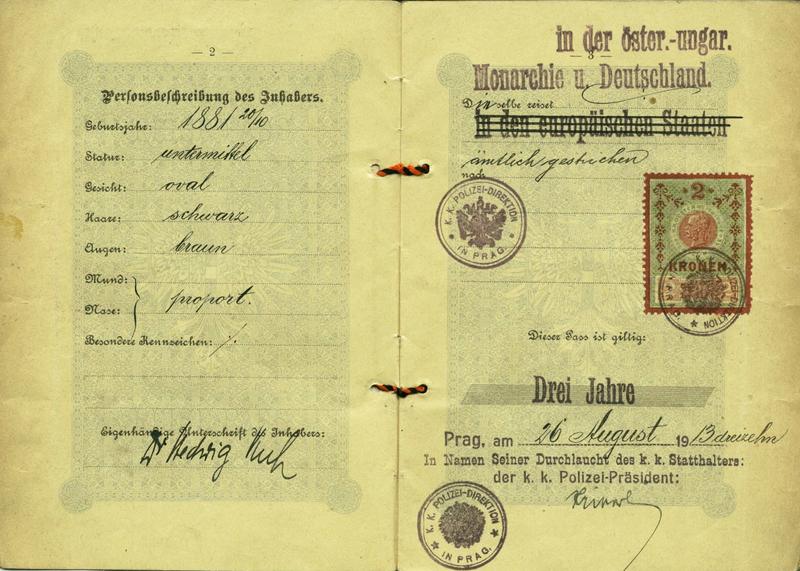 — 2 —
Personsbeschreibung des Inhabers.
Geburtsjahr: 1881 20/10
Statur: untermittel
Gesicht: oval
Haare: schwarz
Augen: braun
Mund:
proport.
Nase:
Besondere Kennzeichen: /.
Eigenhändige Unterschrift des Inhabers:
Dr Hedwig
in der öster.-ungar.
— 3 —
Monarchie u. Deutschland.
Dieselbe reiset
in den europäischen Staaten
ämtlich gestrichen
nach
K. K. POLIZEI-DIREKTION
IN PRAG.
2
KRONEN
K. K. POLIZEI-DIREKTION
IN PRAG
Dieser Pass ist giltig:
Drei Jahre
Prag, am 26 August 1913 dreizehn
In Namen Seiner Durchlaucht des k. k. Statthalters:
der k. k. Polizei-Präsident:
K. K. POLIZEI-DIREKTION
IN PRAG.